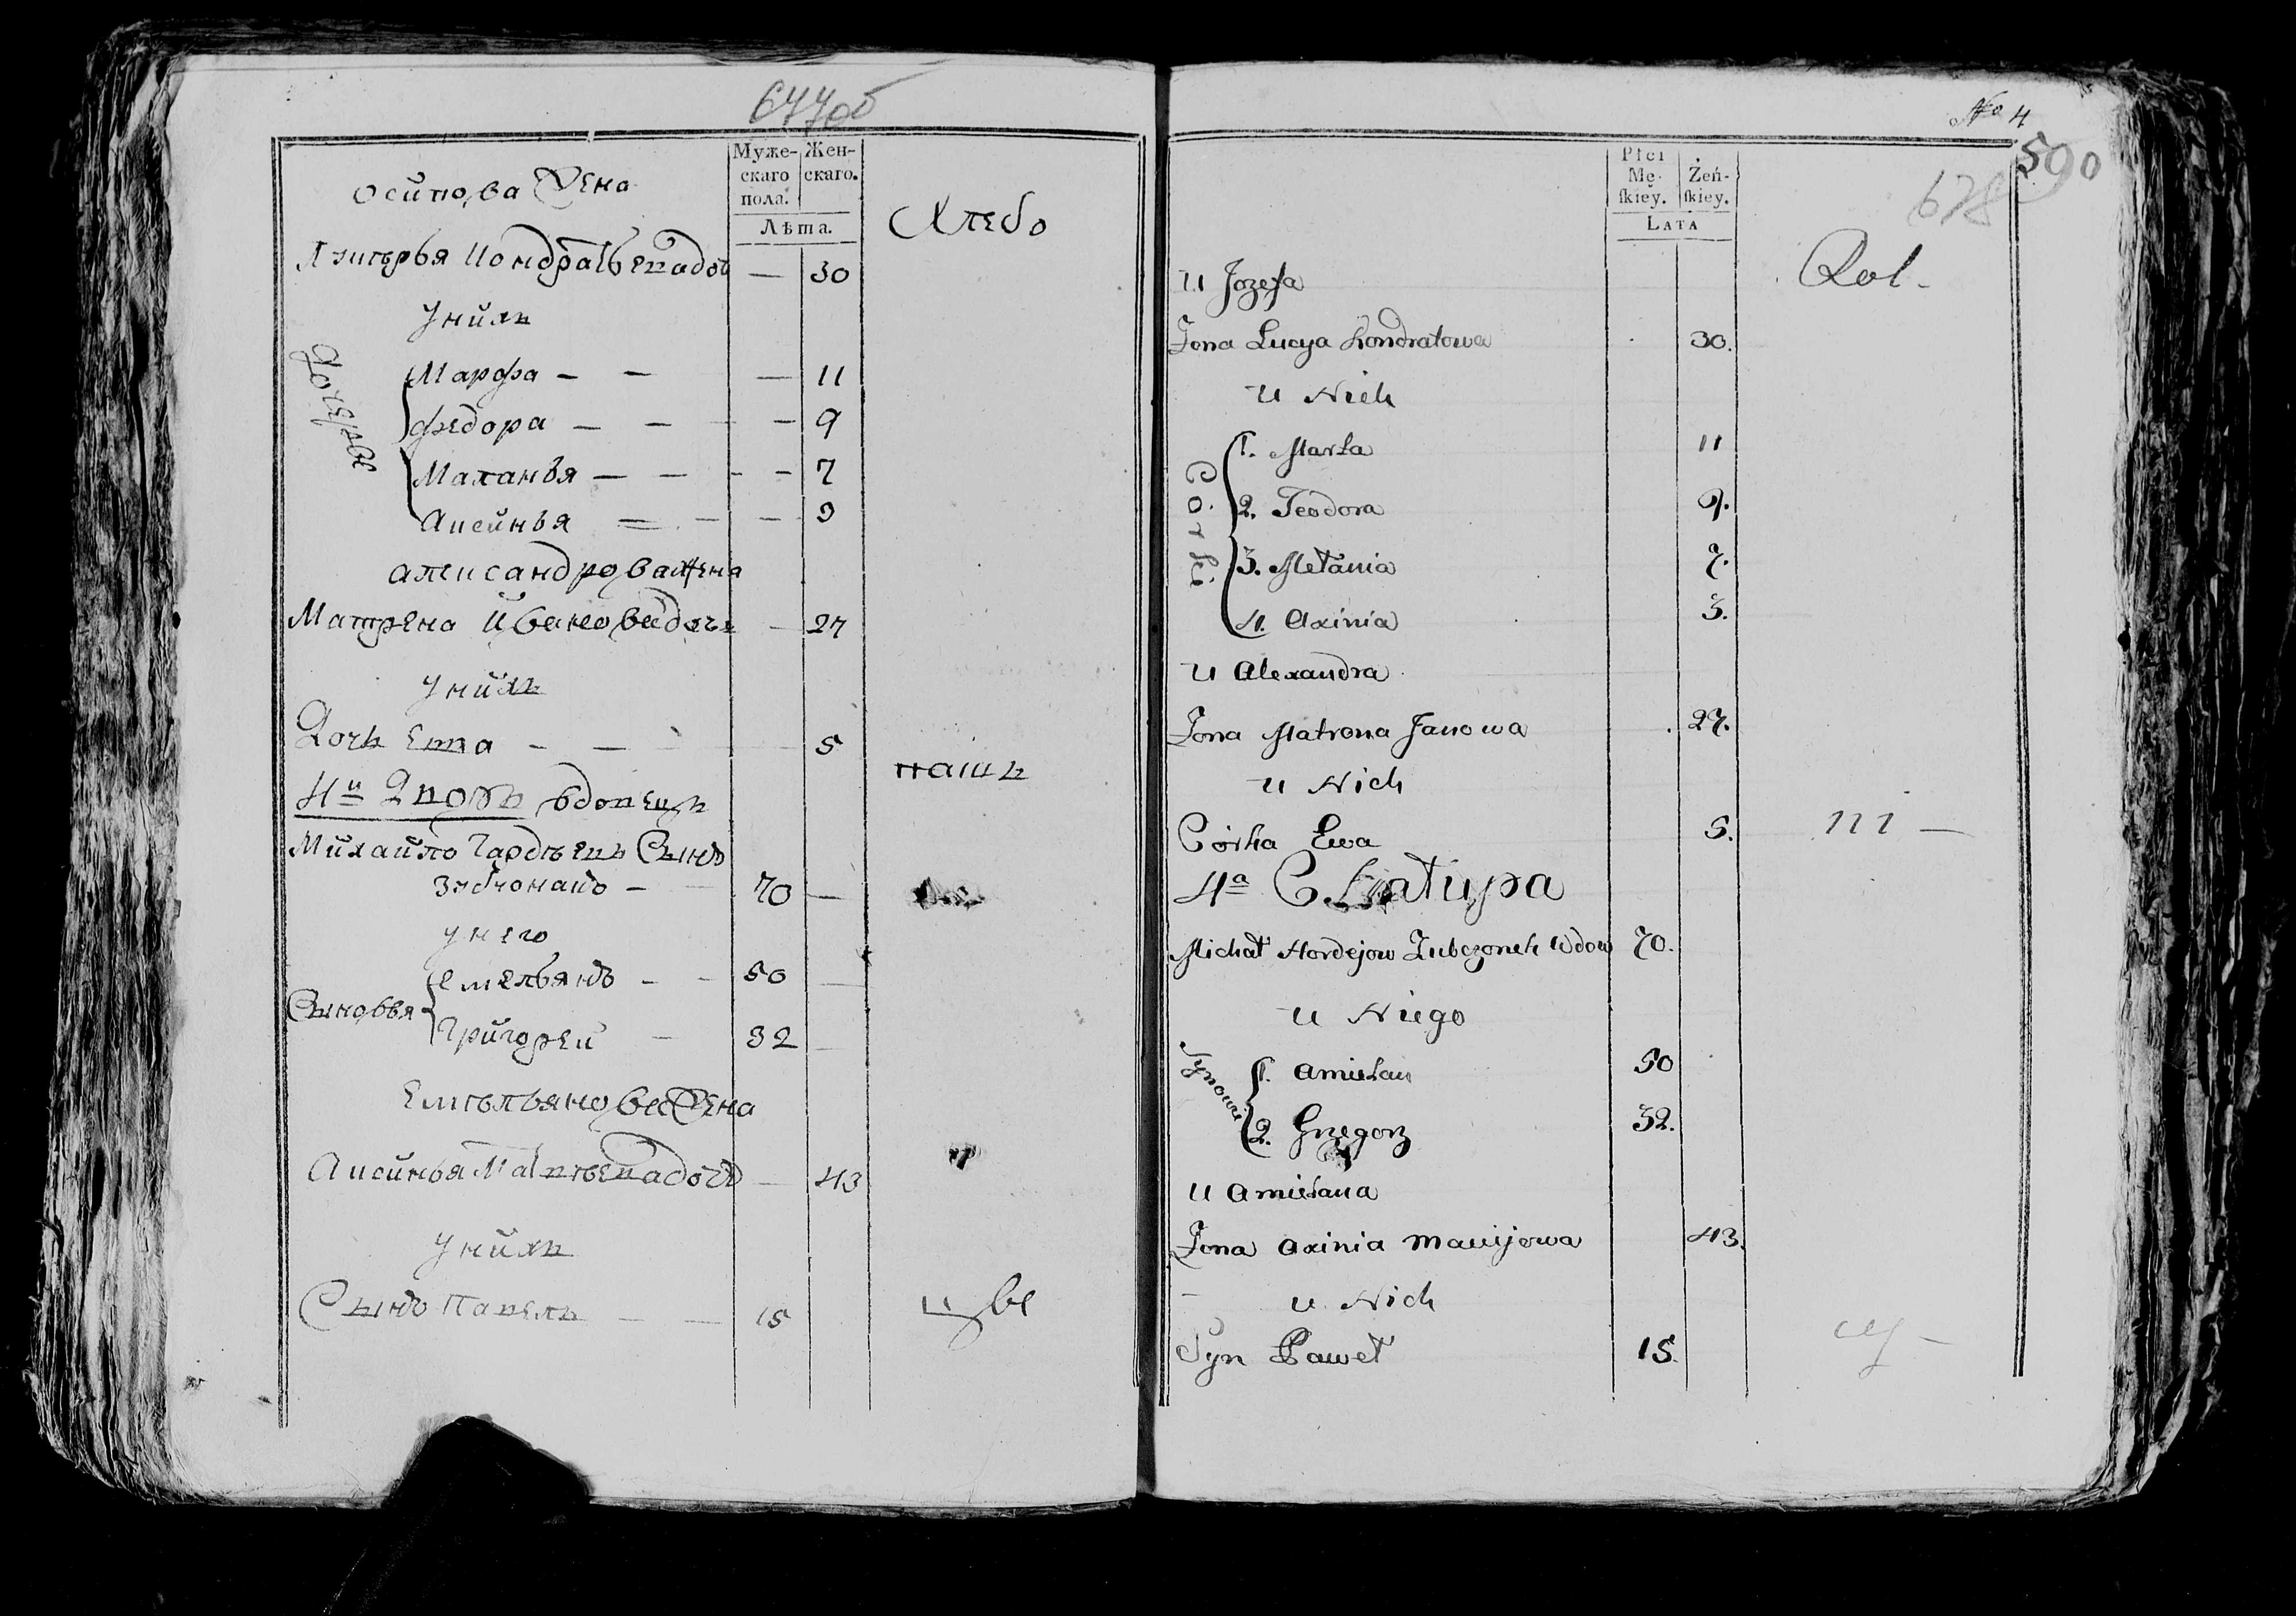 677об
Муже-
скаго
пола.
Жен-
скаго.
Лѣта.
Осипова Жена
Хлебо
Лукерья Кондратьева дочь — 30
У нихъ
Дочерье
Марфа — — — 11
Федора — — — 9
Маланья — — — 7
Аксинья — — — 3
Александрова Жена
Матрена Иванова дочь — 27
У нихъ
Дочь Ева — — 5
пашъ
4й Дворъ вдовецъ
Михайло Гардѣевъ Сынъ
Зубчонакъ — 70 —
у него
Сыновья
Емельянъ — — 50 —
Григорей — 32 —
Емельянова Жена
Аксинья Матвѣева дочь — 43
У нихъ
Сынъ Павелъ — — 15
цы ве
№ 4
590
678
Płci
Mę-
ſkiey.
Żeń-
ſkiey.
LATA
Rol-
U Jozefa
Żona Łucya Kondratowa 30.
U Nich
Córki
1. Marta 11
2. Teodora 9.
3. Mełania 7.
4. Axinia 3.
U Alexandra
Żona Matrona Janowa 27.
U Nich
Córka Ewa 5.
ni —
4a Chałupa
Michał Hordejow Zubczonek Wdow 70.
U Niego
Synowie
1. Amielan 50
2. Grzegorz 32.
U Amielana
Żona Axinia Maciijowa 43.
U Nich
Syn Paweł 15.
cy —